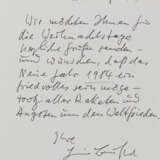 Wir möchten Ihnen für
die Weihnachtstage
herzliche Grüße senden
und wünschen, daß das
Neue Jahr 1984 ein
friedvolles sein möge –
trotz aller Raketen und
Ängsten um den Weltfrieden.
Ihre